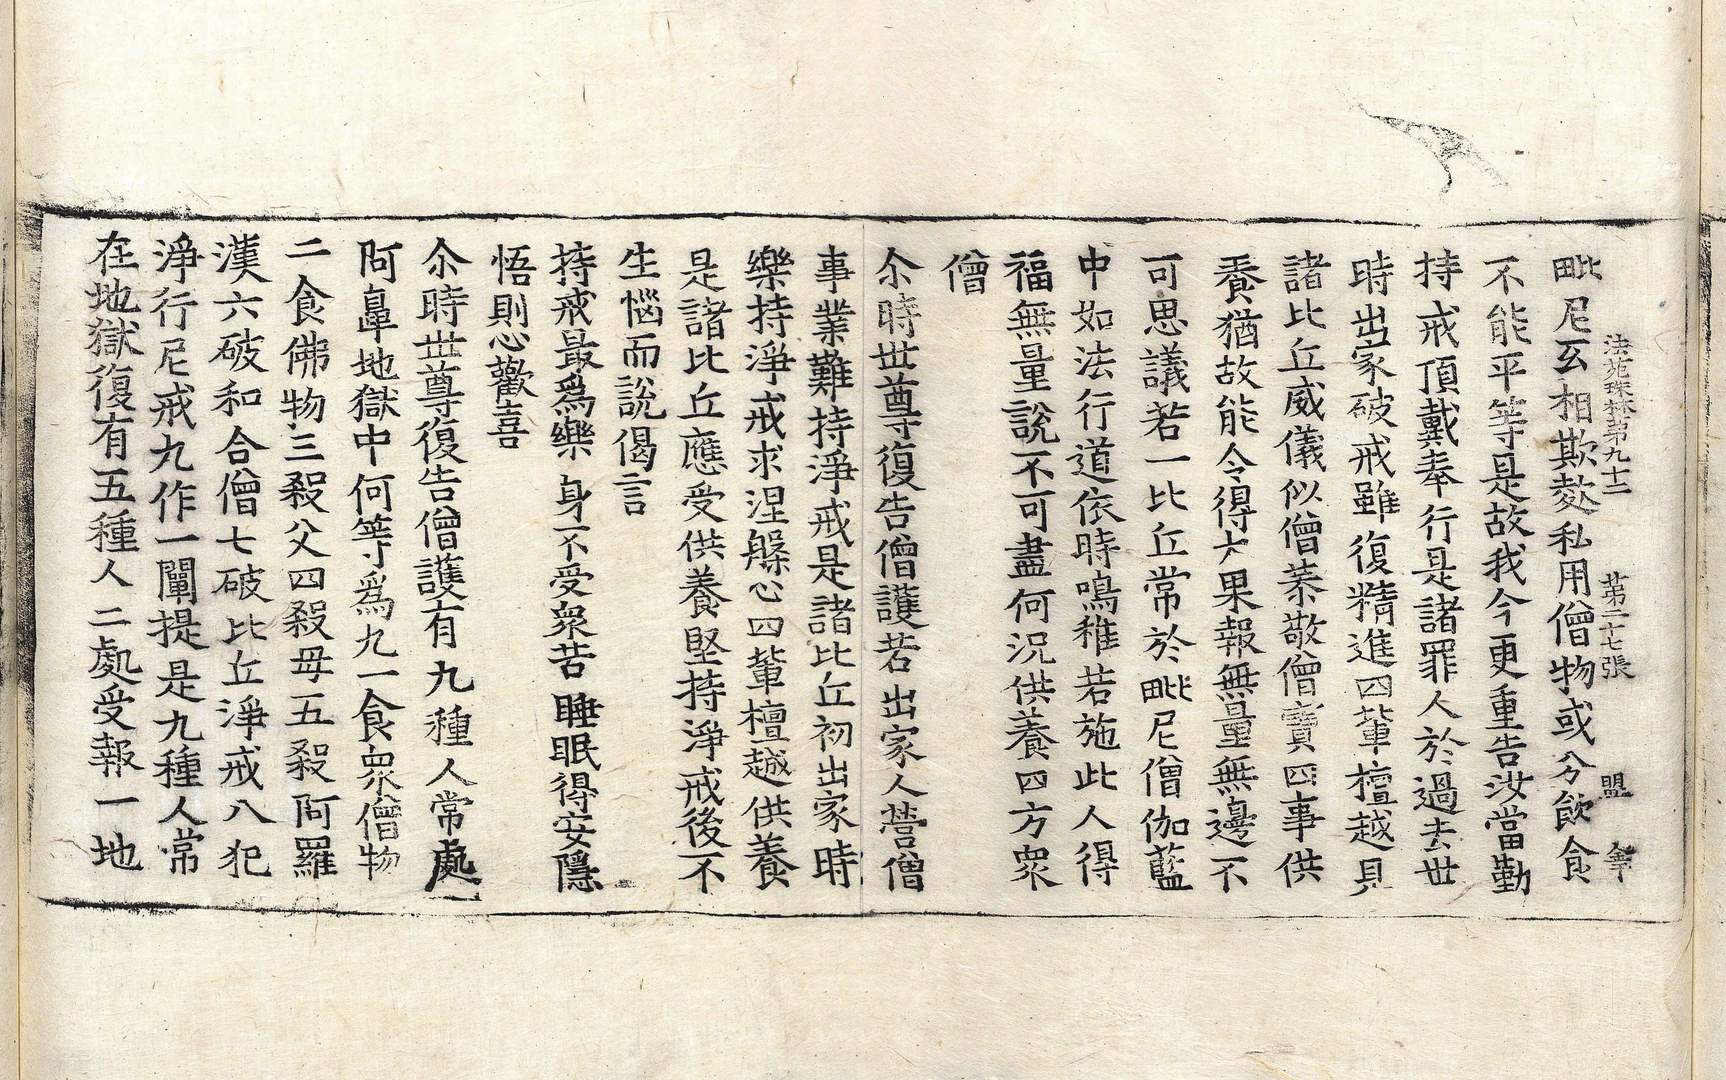 法苑珠林第九十二 第二十七張 盟
毗尼互相欺慾私用僧物或分飲食
不能平等是故我今更重告汝當勤
持戒頂戴奉行是諸罪人於過去世
時出家破戒雖復精進四輩檀越見
諸比丘威儀似僧恭敬僧寶四事供
養猶故能令得大果報無量無邊不
可思議若一比丘常於毗尼僧伽藍
中如法行道依時鳴稚若施此人得
福無量說不可盡何況供養四方衆
僧
尒時世尊復告僧護若出家人營僧
事業難持淨戒是諸比丘初出家時
樂持淨戒求涅槃心四輩檀越供養
是諸比丘應受供養堅持淨戒後不
生惱而說偈言
持戒最為樂 身不受衆苦 睡眠得安隱
悟則心歡喜
尒時世尊復告僧護有九種人常處
阿鼻地獄中何等為九一食衆僧物
二食佛物三殺父四殺母五殺阿羅
漢六破和合僧七破比丘淨戒八犯
淨行尼戒九作一闡提是九種人常
在地獄復有五種人二處受報一地